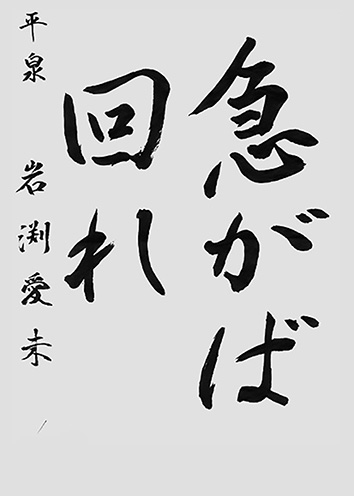 急がば
回れ
平泉 岩渕愛未